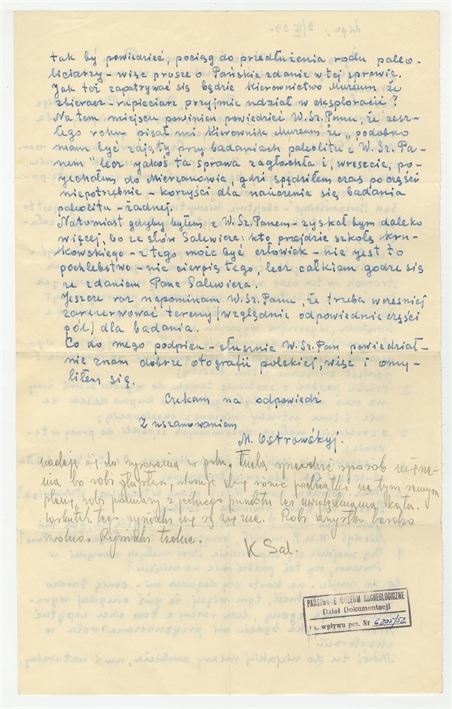 tak by powiedzieć, pociąg do przedłużenia rodu paleo-
liciarzy - więc proszę o Pańskie zdanie w tej sprawie.
Jak też zapatrywać się będzie Kierownictwo Muzeum że
zbieracz - nipieciarz przyjmie udział w eksploracii?
Na tem miejscu powinien powiedzieć W.Sz. Panu, że zesz-
łego roku pisał mi Kierownik Muzeum że "podobno
mam być zajęty przy badaniach paleolitu z W.Sz. Pa-
nem" lecz jakoś ta sprawa zagłochła i, wreszcie, po-
jechałem do Mierzanowic, gdzi spędziłem czas po części
niepotrzebnie - korzyści dla nauczenia się badania
paleolitu - żadnej.
Natomiast gdyby byłem z W.Sz. Panem - zyskał bym daleko
więcej, bo ze słów Salewicza: kto przejdzie szkołę kru-
kowskiego - z tego może być człowiek - nie jest to
pochlebstwo - nie cierpię tego, lecz całkiem godzę się
ze zdaniem Pana Salewicza.
Jeszcze raz napominam W.Sz. Panu, że trzeba wcześniej
zarezerwować tereny/względnie odpowiednie części
pól/ dla badania.
Co do mego podpisu - słusznie W.Sz. Pan powiedział -
nie znam dobrze otografii polskiej, więc i omy-
liłem się.
Czekam na odpowiedź
Z uszanowaniem
M. Ostrowśkyj.
nadaje się do w polu. sposób
na tym samym
robi pomiary z jednego punktu bez uwzględnienia kąta.
Wskutek tego się Robi wszystko bardzo
wolno. Rysunki
K Sal.
PAŃSTWOWE MUZEUM ARCHEOLOGICZNE
Dział Dokumentacji
wpływu poz. Nr 6205/52